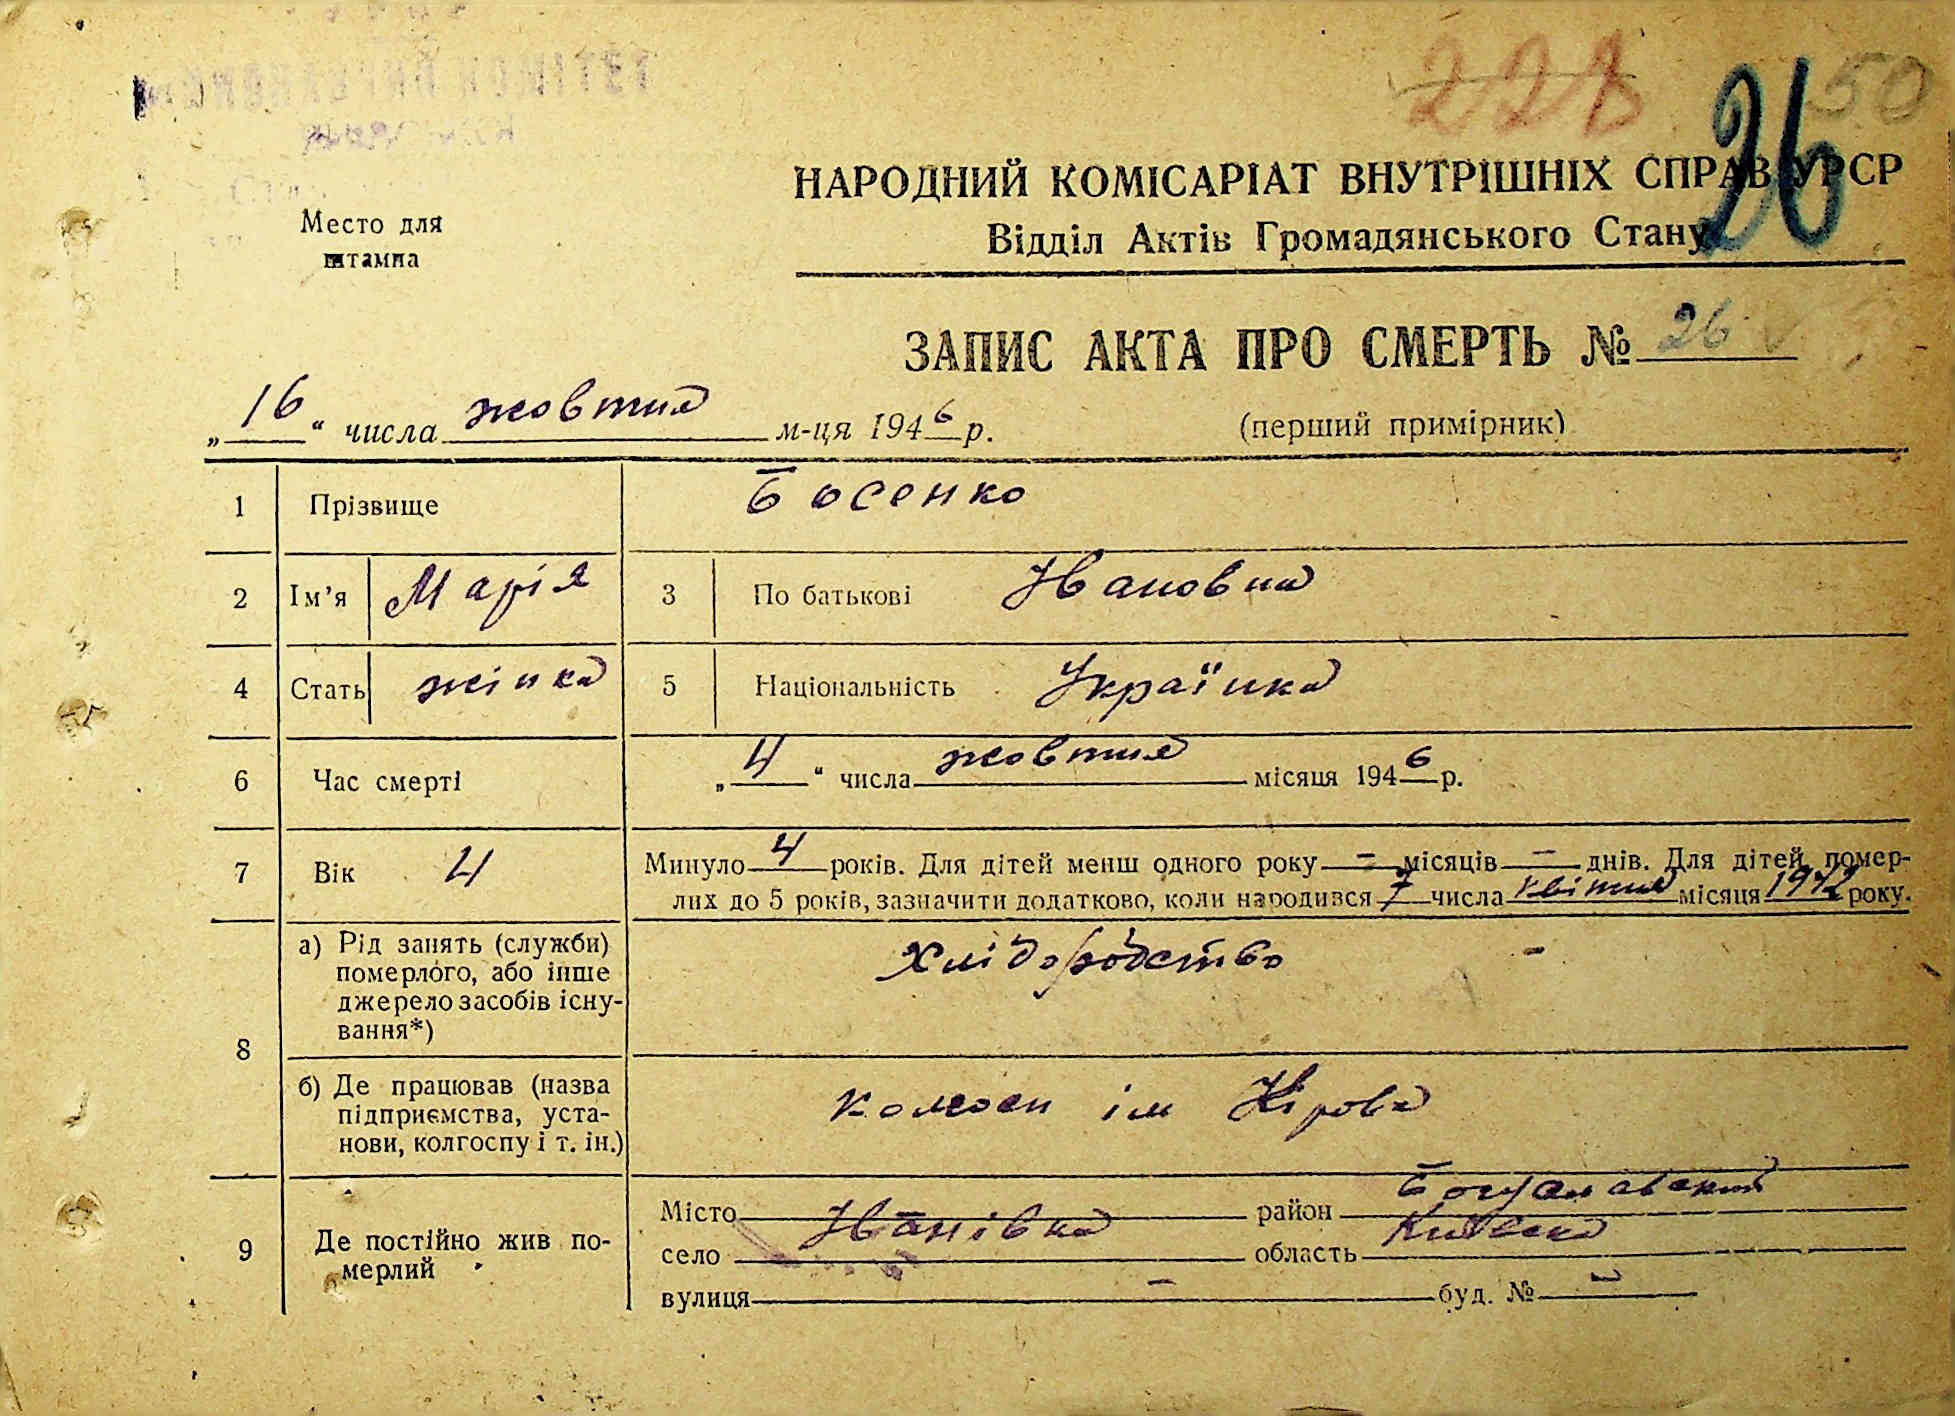 228
26
50
НАРОДНИЙ КОМІСАРІАТ ВНУТРІШНІХ СПРАВ УРСР
Відділ Актів Громадянського Стану
Место для
штампа
ЗАПИС АКТА ПРО СМЕРТЬ № 26
„16“ числа жовтня м-ця 1946 р.
(перший примірник)
1 Прізвище Босенко
2 Ім'я Марія 3 По батькові Івановна
4 Стать жінка 5 Національність Українка
6 Час смерті „4“ числа жовтня місяця 1946 р.
7 Вік 4 Минуло 4 років. Для дітей менш одного року - місяців - днів. Для дітей, помер-
лих до 5 років, зазначити додатково, коли народився 7 числа квітня місяця 1942 року.
8 а) Рід занять (служби)
померлого, або інше
джерело засобів існу-
вання*)
хлібородство -
б) Де працював (назва
підприємства, уста-
нови, колгоспу і т. ін.)
ім Кірова
9 Де постійно жив по-
мерлий
Місто район Богуславский
село Іванівка область Київска
вулиця - буд. № -